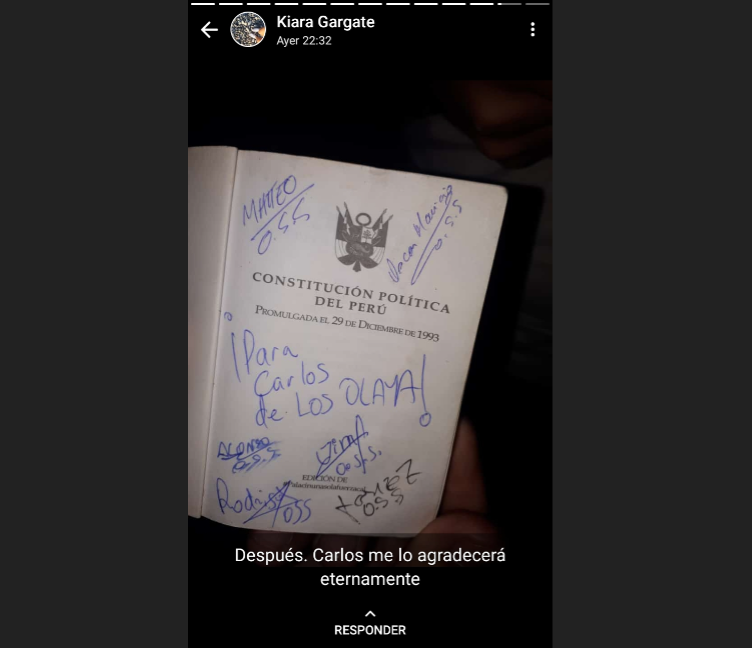 Kiara Gargate
Ayer 22:32
MATTEO
O.S.S
O.S.S
CONSTITUCIÓN POLÍTICA
DEL PERÚ
PROMULGADA EL 29 DE DICIEMBRE DE 1993
¡Para
Carlos
de LOS OLAYA!
ALONSO
O.S.S
O.S.S.
EDICIÓN DE
Rodrigo
OSS
OSS
Después. Carlos me lo agradecerá
eternamente
RESPONDER